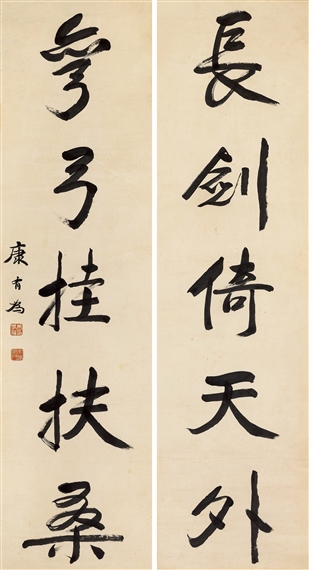 長劍倚天外
弯弓挂扶桑
康有為